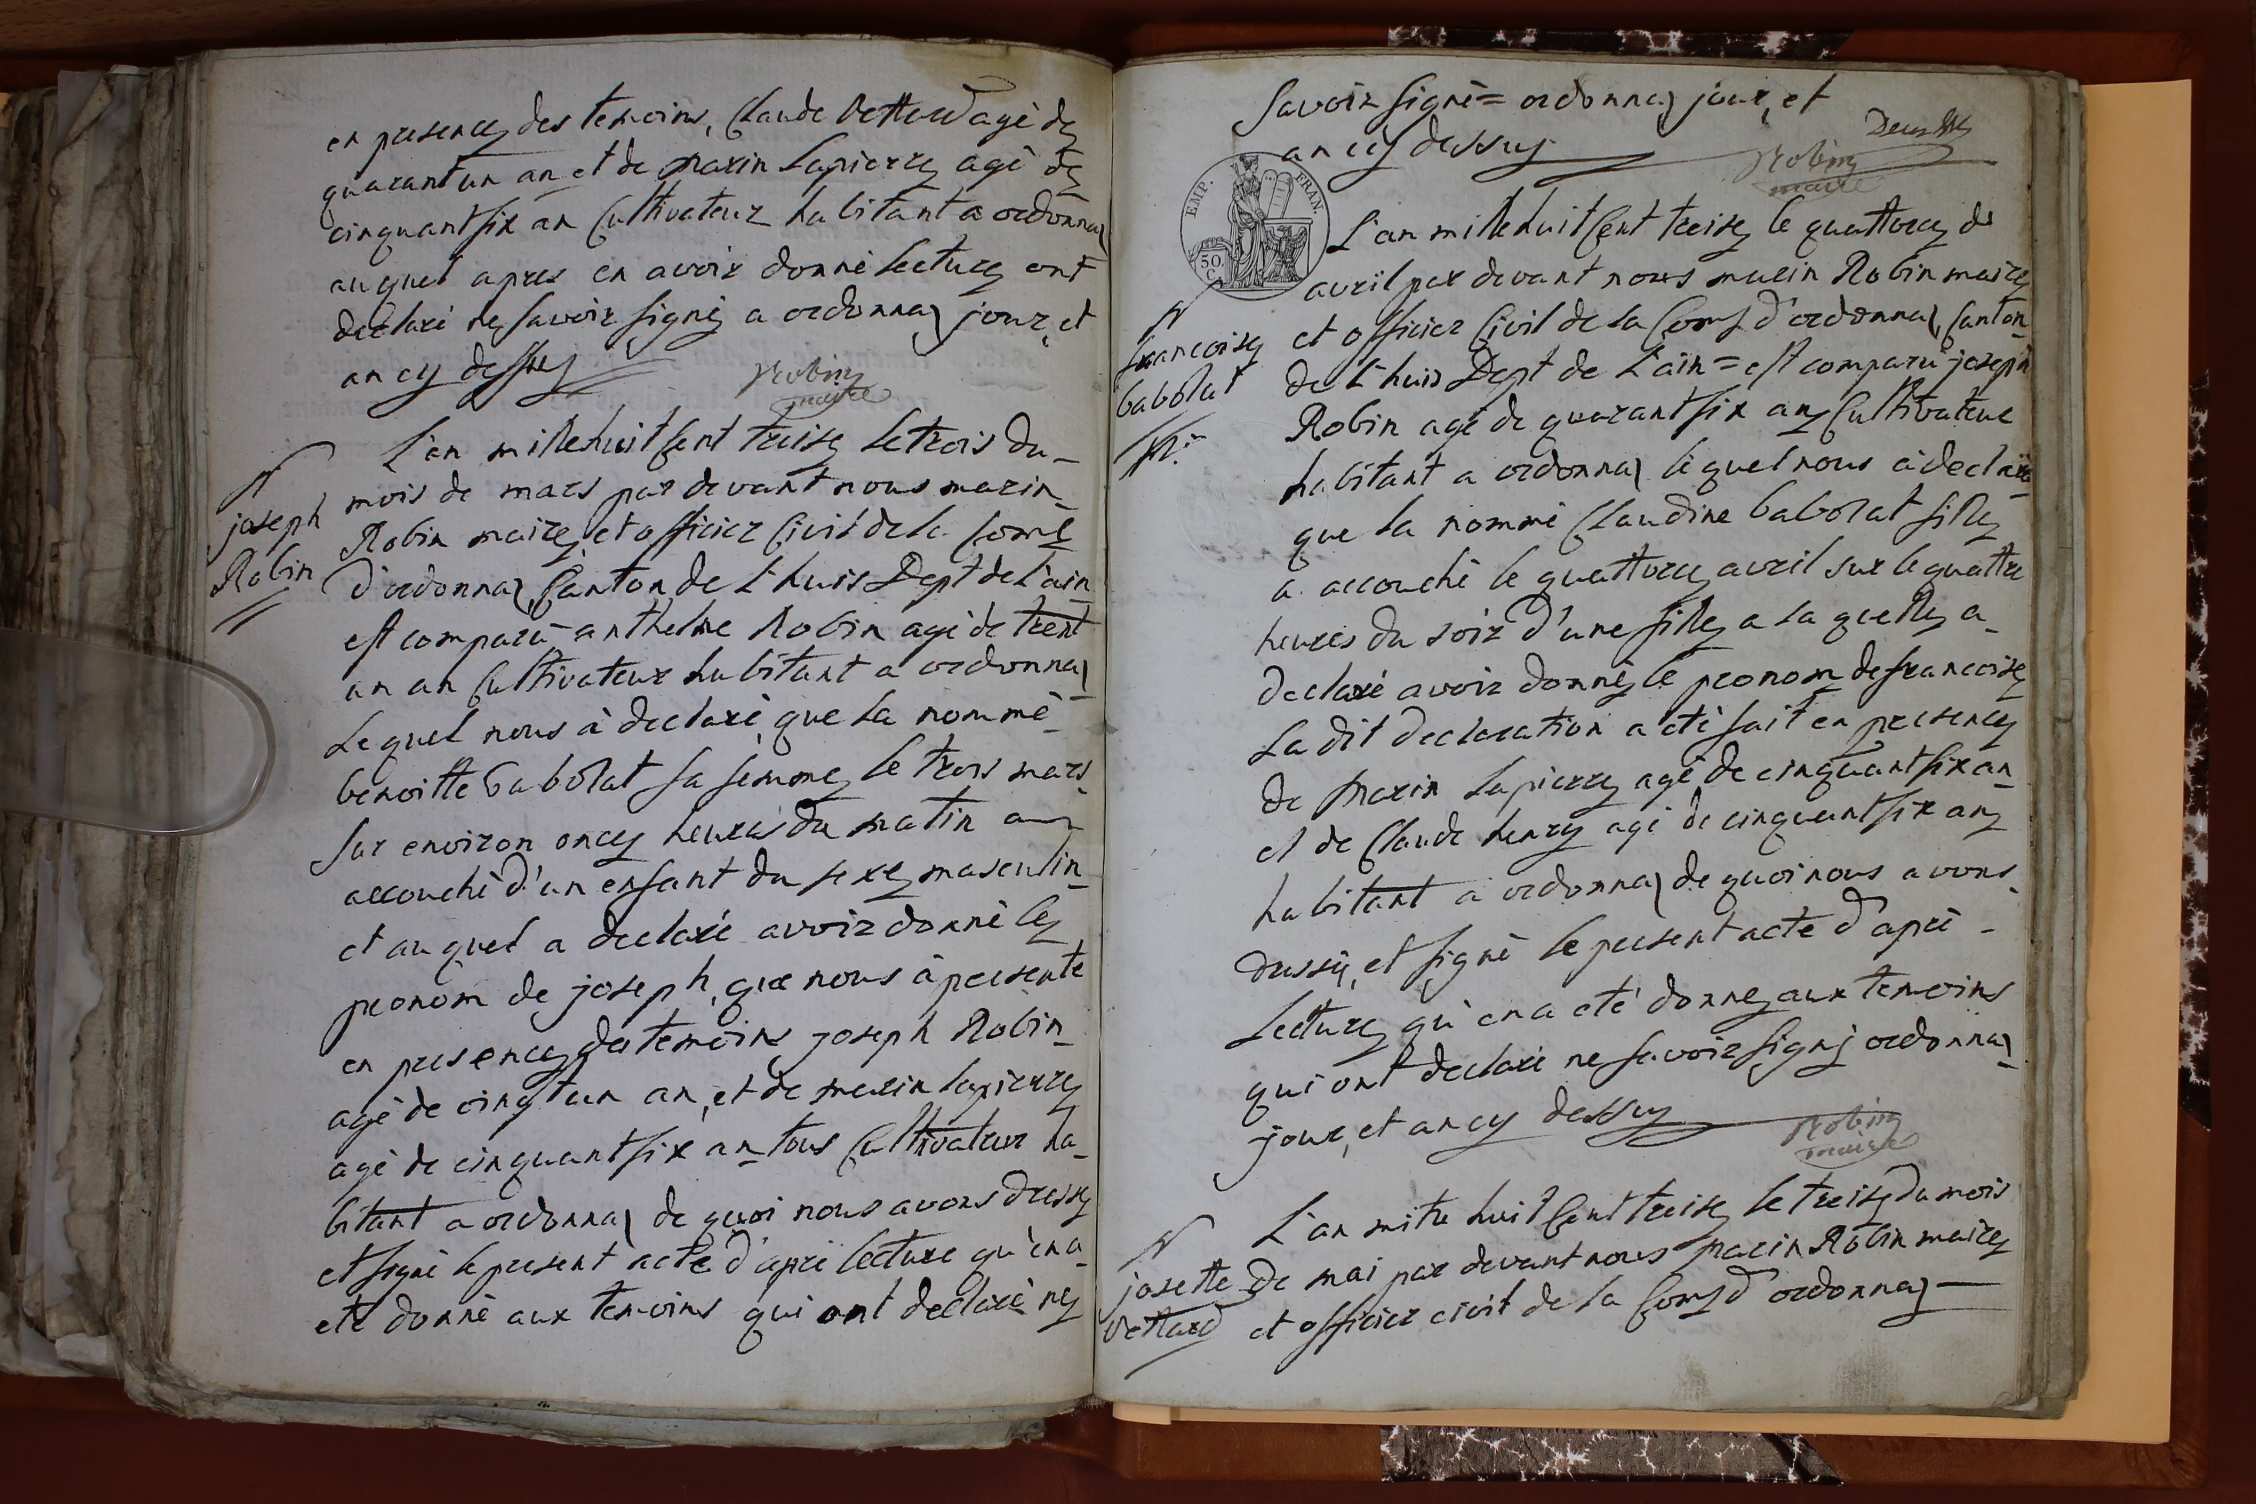 en presence des temoins, Claude Vettard agé de
quarant un an et de marin Lapierre agé de
cinquant six an Cultivateur habitant a ordonna
auquel apres en avoir donné Lecture ont
declaré ne savoir signé a ordonna jour, et
an cy dessus
Robin
maire
N
joseph
Robin
L'an mille huit Cent treise le trois du
mois de mars par devant nous marin
Robin maire, et officier Civil de la Comᵉ
d'ordonna, Canton de L'huis Dept de L'ain
est comparu anthelme Robin agé de trent
un an Cultivateur habitant a ordonna
Lequel nous à declaré que la nommé
benoitte babolat sa femme le trois mars
sur environ once heures du matin a
accouché d'un enfant du sexe masculin
et auquel a declaré avoir donné le
pronom de joseph, que nous à presenté
en presence des temoins joseph Robin
agé de cinqt un an, et de marin lapierre
agé de cinquant six an tous Cultivateur ha-
bitant a ordonna de quoi nous avons dresse
et signé le present acte d'aprè lecture qu'en a
eté donné aux temoins qui ont declaré ne
savoir signé = ordonna jour, et
an cy dessus
Robin
maire
EMP. FRAN.
50.
C.
N
francoise
babolat
L'an mille huit Cent treise le quattorce de
avril par devant nous marin Robin maire
et officier Civil de la Comᵉ d'ordonna, Canton
de L'huis Dept de L'ain = est comparu joseph
Robin agé de quarant six an Cultivateur
habitant a ordonna lequel nous à declaré
que la nommé Claudine babolat fille
a accouché le quattorce avril sur le quattre
heures du soir d'une fille a la quelle a
declaré avoir donné le pronom de francoise
La dit declaration a eté fait en presence
de marin Lapierre agé de cinquant six an
et de Claude henry agé de cinquant six an
habitant a ordonna de quoi nous avons
dressé, et signé le present acte d'aprè
Lecture qu'en a eté donne aux temoins
qui ont declaré ne savoir signé ordonna
jour, et an cy dessus
Robin
maire
N
josette
Vettard
L'an mille huit Cent treise le treise du mois
de mai par devant nous marin Robin maire
et officier civil de la Comᵉ d'ordonna